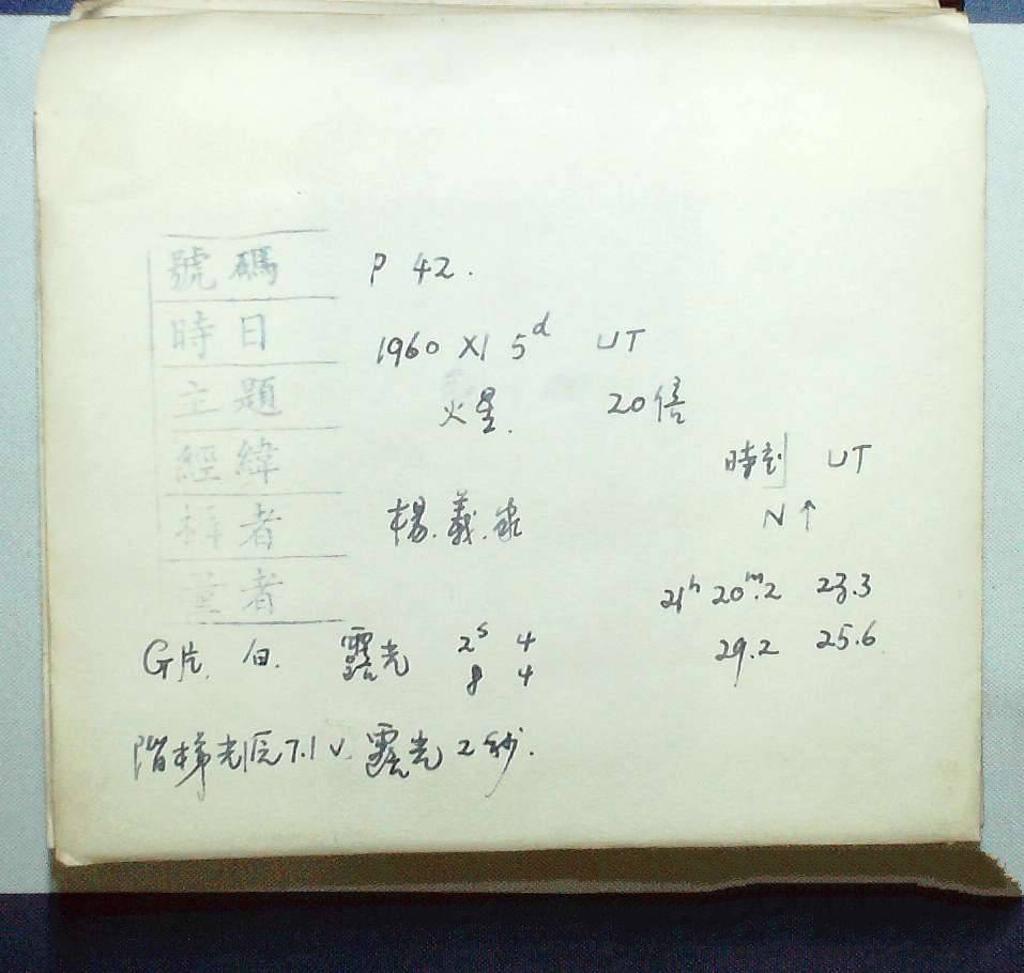 號碼 P 42.
時日 1960 XI 5d UT
主題 火星. 20倍
經緯 時刻 UT
者 楊.義. N↑
者 21h 20m.2 23.3
G片. 白. 露光 2s 4 29.2 25.6
8 4
階梯光源7.1V 露光2秒.